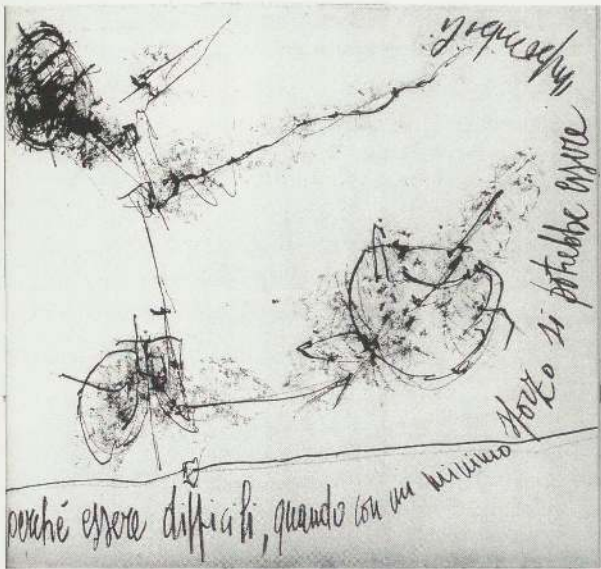 perché essere difficili, quando con un minimo sforzo si potrebbe essere